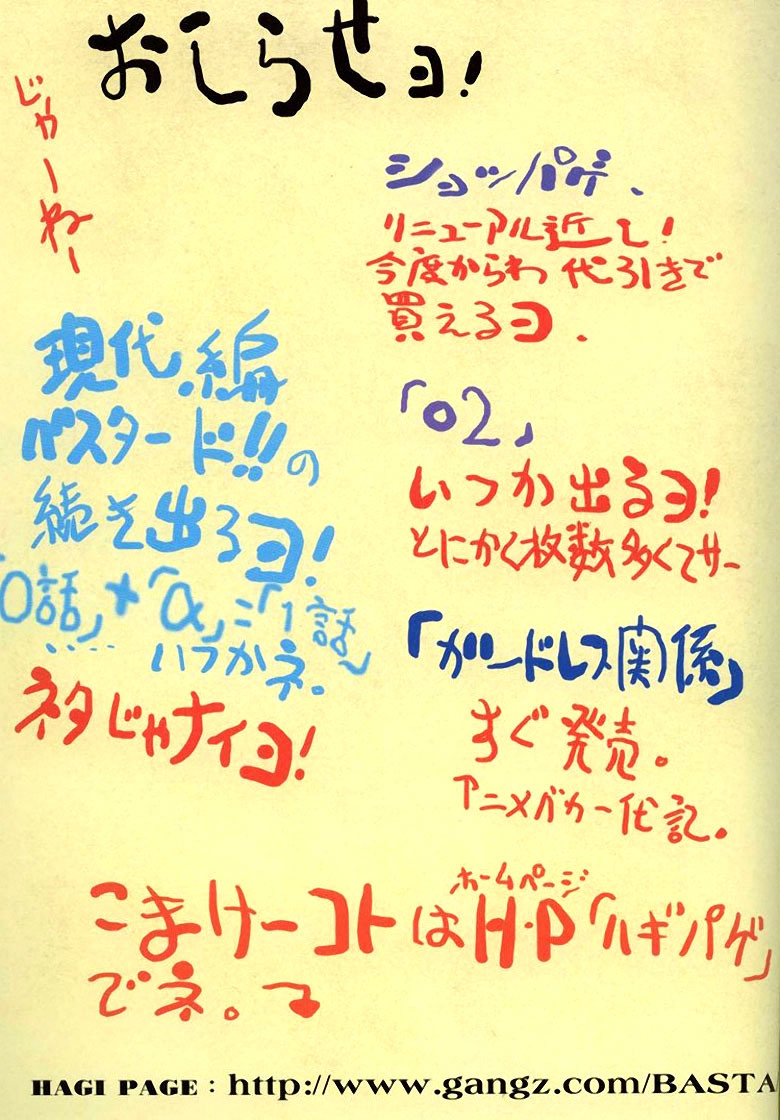 おしらせヨ!
ショッパゲ、
リニューアル近し!
今度からわ代引きで
買えるヨ、
「02」
いつか出るヨ!
とにかく枚数多くてサー
「ガードレス関係」
すぐ発売。
アニメバカ一代記。
じゃーねー
現代編
バスタード!!の
続き出るヨ!
「0話」+「α」=「1話」
・・・・いつかネ。
ネタじゃナイヨ!
ホームページ
こまけーコトはH・P「ハギパゲ」
でネ。→
HAGI PAGE : http://www.gangz.com/BASTA